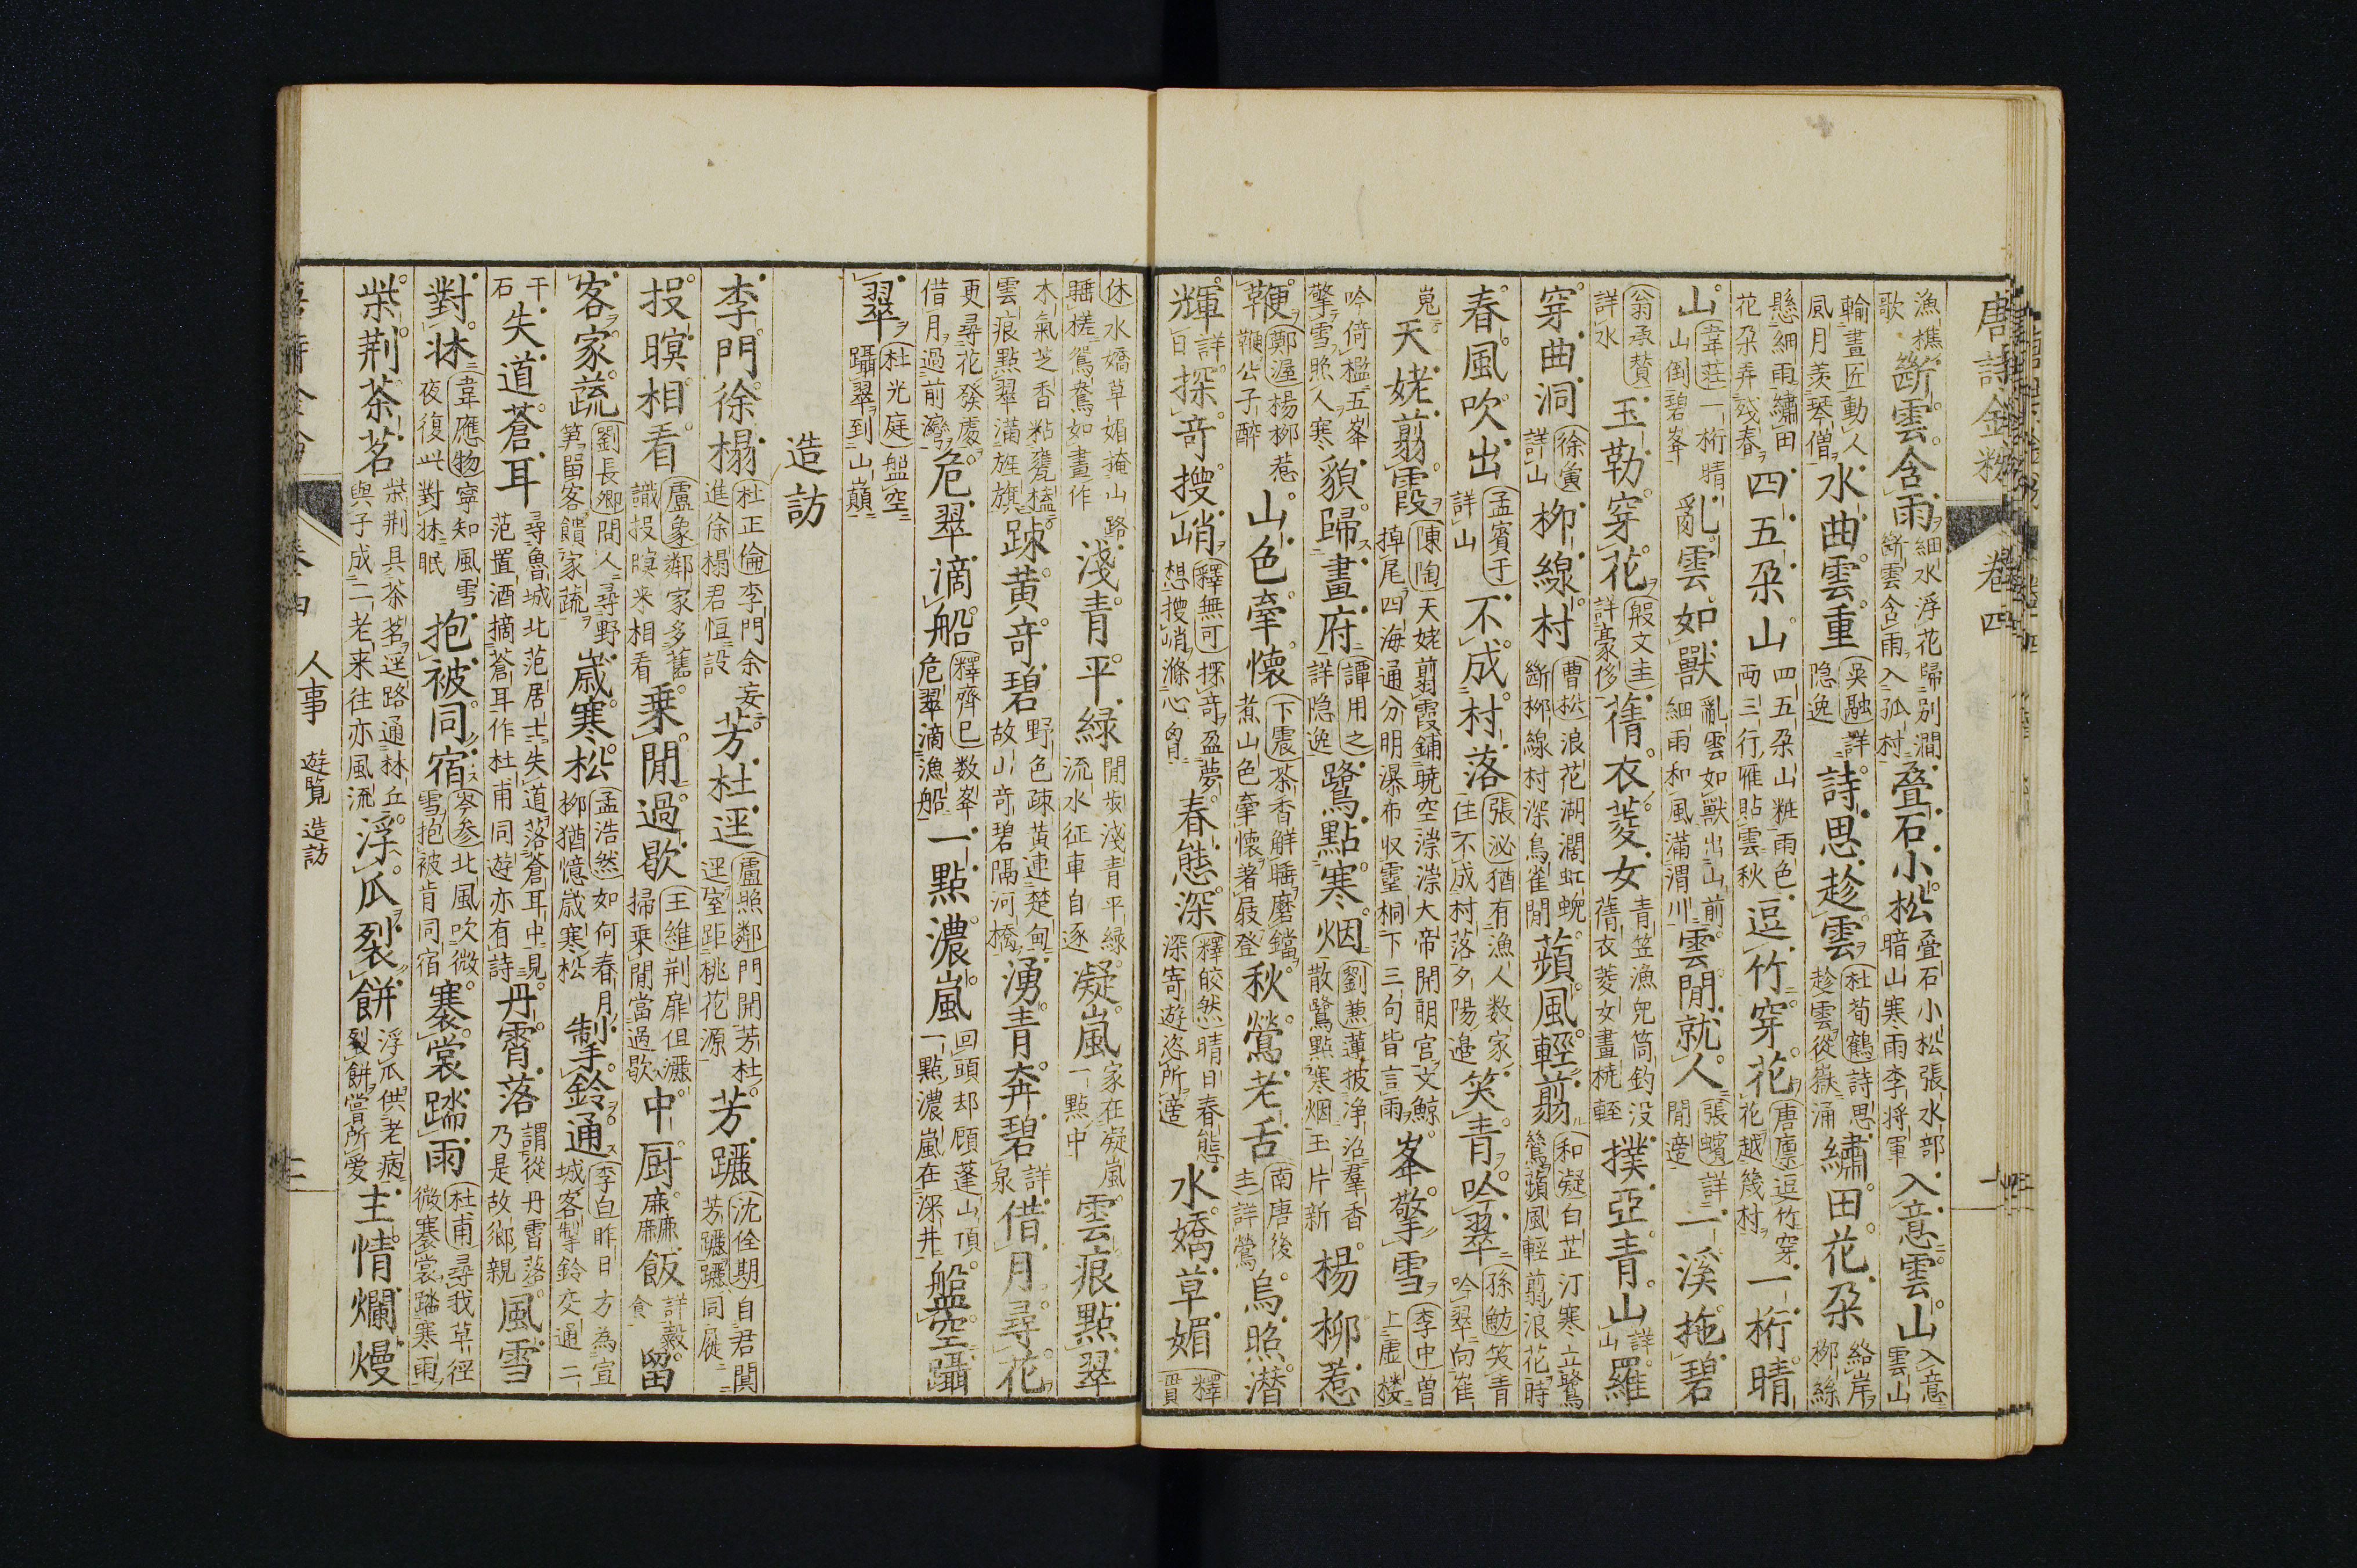 唐詩金粉 卷四
漁樵歌 斷雲含雨 細水浮花歸別澗斷雲含雨入孤村 叠石小松 叠石小松張水部暗山寒雨李將軍 入意雲山 入意雲山
輸畫匠動人風月羨琴僧 水曲雲重 吳融詳隐逸 詩思趁雲 杜荀鶴詩思趁雲從嶽涌 繡田花朶 綌岸柳絲
懸細雨繡田花朶弄殘春 四五朶山 四五朶山粧雨色兩三行雁貼雲秋 逗竹穿花 唐廪逗竹穿花越幾村 一桁晴
山 韋莊一桁晴山倒碧峯 亂雲如獸 亂雲如獸出山前細雨和風滿渭川 雲閒就人 張蠙詳閒適 一溪拖碧
翁承贊詳水 玉勒穿花 殷文圭詳豪侈 蒨衣菱女 青笠漁兒筒釣没蒨衣菱女畫桡輕 撲亞青山 詳山 羅
穿曲洞 徐夤詳山 柳線村 曹松浪花湖濶虹蜺斷柳線村深鳥雀閒 蘋風輕翦 和凝白芷汀寒立鷺鷥蘋風輕翦浪花時
春風吹出 孟賓于詳山 不成村落 張泌猶有漁人数家住不成村落夕陽邉 笑青吟翠 孫魴笑青吟翠向崔
嵬 天姥翦霞 陳陶天姥翦霞鋪曉空漴漴大帝開明宫文鯨掉尾四海通分明瀑布收靈桐下三句皆言雨 峯擎雪 李中曽上虚楼
吟倚檻五峯擎雪照人寒 貌歸畫府 譚用之詳隐逸 鷺點寒烟 劉兼蓮披浄沼羣香散鷺點寒烟玉片新 楊柳惹
鞭 鄭渥楊柳惹鞭公子醉 山色牽懷 卞震茶香觧睡磨鐺煮山色牽懷著屐登 秋鶯老舌 南唐後主詳鶯 烏照潜
輝 詳百 探奇搜峭 釋無可探奇盈夢想搜峭滌心胷 春態深 釋皎然晴日春態深寄遊恣所適 水嬌草媚 釋貫
休水嬌草媚掩山路睡槎鴛鴦如畫作 淺青平緑 閒歩淺青平緑流水征車自逐 凝嵐 家在凝嵐一點中 雲痕點翠
木氣芝香粘甕榼雲痕點翠滿旌旗 踈黄奇碧 野色踈黄連楚甸故山奇碧隔河橋 湧青奔碧 詳泉 借月尋花
更尋花發處借月過前灣 危翠滴船 釋齊已数峯危翠滴漁船 一點濃嵐 回頭却顧蓬山頂一點濃嵐在深井 盤空躡
翠 杜光庭盤空躡翠到山巓
造訪
李門徐榻 杜正倫李門余妄進徐榻君恒設 芳杜逕 盧照鄰門開芳杜逕室距桃花源 芳躧 沈佺期自君閴芳躧躧同屣
投暝相看 盧象鄰家多舊識投暝来相看 乗閒過歇 王維荆扉但灑掃乗閒當過歇 中厨麤飯 詳穀食 留
客家蔬 劉長卿問人尋野笋留客饋家蔬 歳寒松 孟浩然如何春月柳猶憶歳寒松 掣鈴通 李白昨日方為宣城客掣鈴交通二
千石 失道蒼耳 尋魯城北范居士失道落蒼耳中見范置酒摘蒼耳作杜甫同遊亦有詩 丹霄落 謂從丹霄落乃是故鄉親 風雪
對牀 韋應物寧知風雪夜復此對牀眠 抱被同宿 岑參北風吹微雪抱被肯同宿 褰裳踏雨 杜甫尋我草徑微褰裳踏寒雨
柴荆茶茗 柴荆具茶茗逕路通林丘與子成二老来往亦風流 浮瓜裂餅 浮瓜供老病裂餅嘗所愛 主情爛熳
卷四 人事 遊覧 造訪